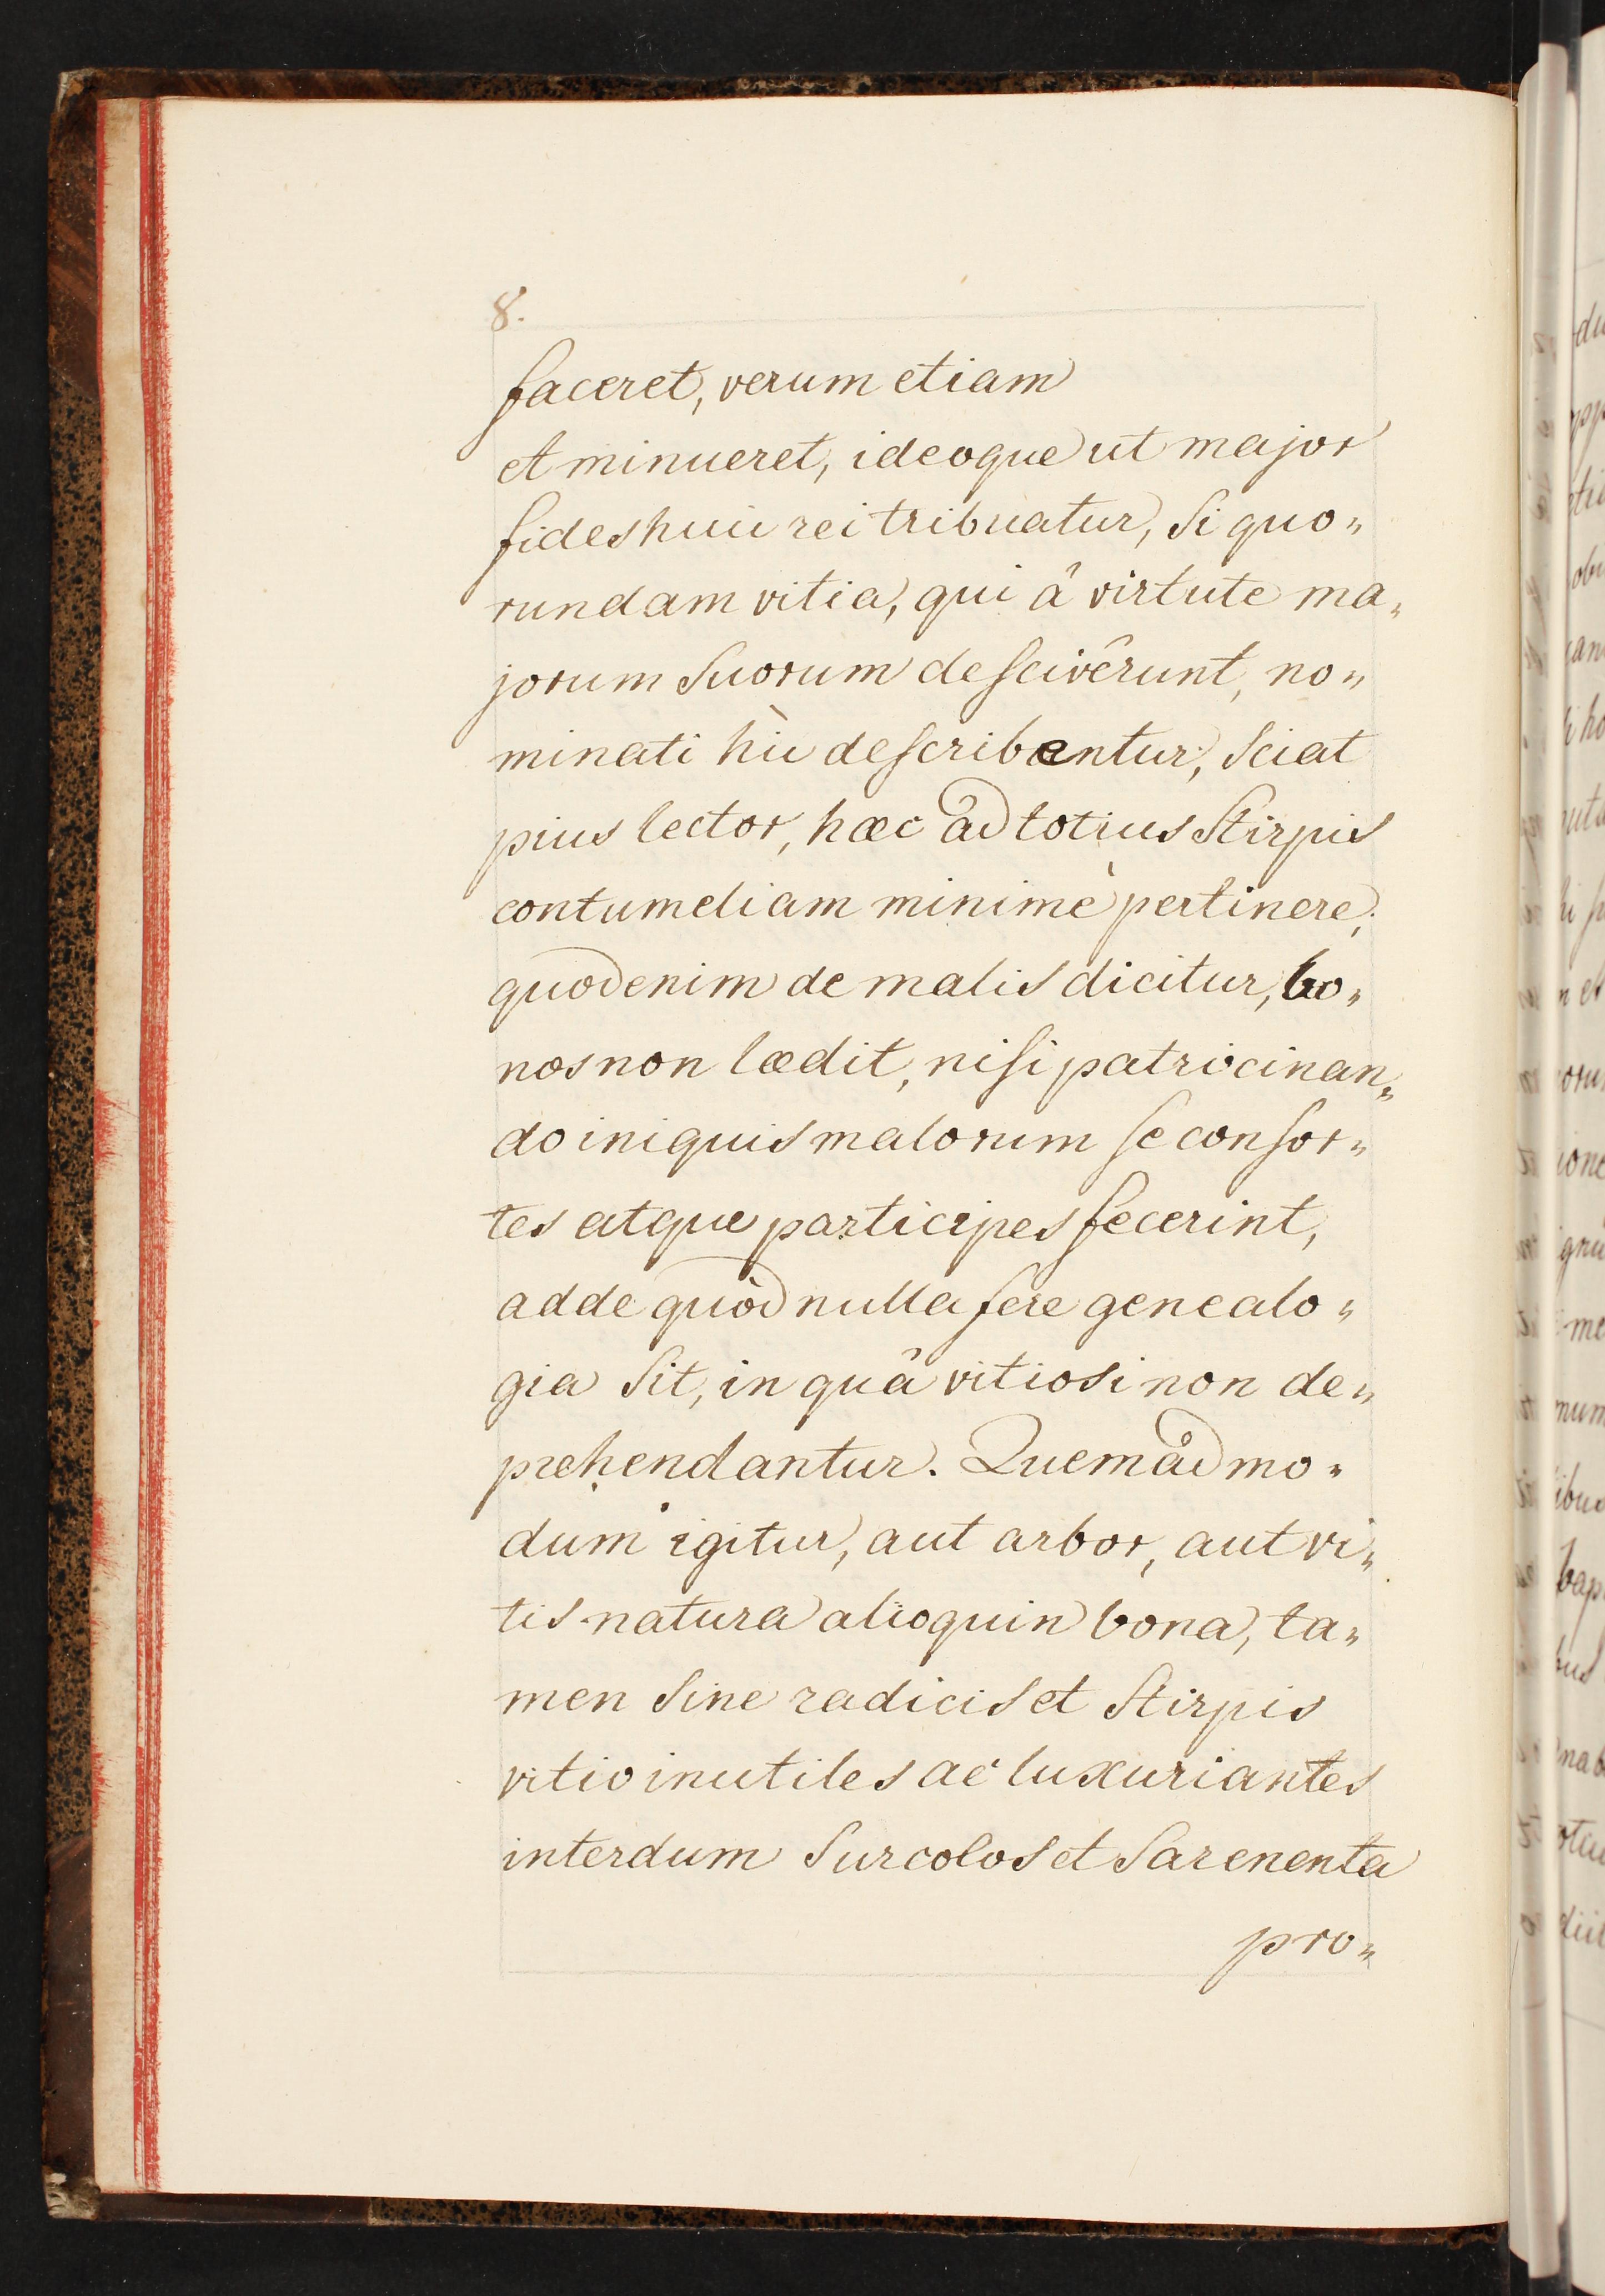 8.
faceret, verum etiam
et minueret, ideoque ut major
fides huic rei tribuatur, si quo„
rundam vitia, qui â virtute ma„
jorum suorum desciverunt, no„
minati hìc describentur, sciat
pius lector, hæc âd totius stirpis
contumeliam minimè pertinere,
quod enim de malis dicitur, bo„
nos non lædit, nisi patrocinan„
do iniquis malorum se consor„
tes atque participes fecerint,
adde quòd nulla fere genealo„
gia sit, in quâ vitiosi non de„
prehendantur. Quemâdmo„
dum igitur, aut arbor, aut vi„
tis natura alioquin bona, ta„
men sine radicis et stirpis
vitio inutiles ac luxuriantes
interdum surcolos et sarenenta
pro„